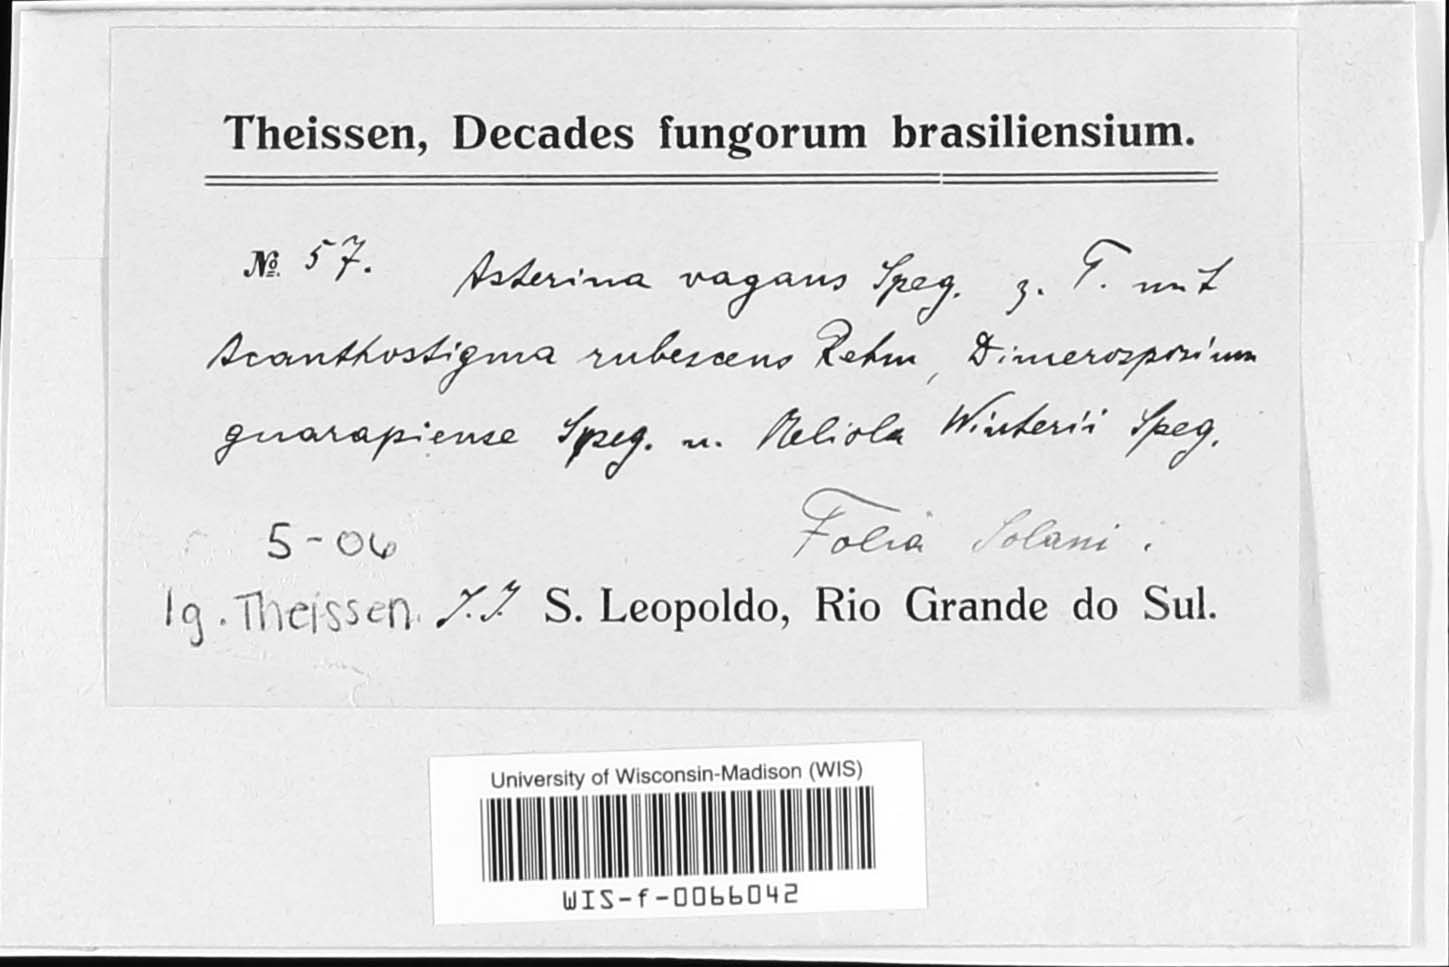 Theissen, Decades fungorum brasiliensium.
№ 57. Asterina vagans Speg. z. T. mit
Acanthostigma rubescens Rehm, Dimerosporium
guarapiense Speg. u. Meliola Winterii Speg.
5-06
Folia Solani.
Ig. Theissen. J.J. S. Leopoldo, Rio Grande do Sul.
University of Wisconsin-Madison (WIS)
WIS-f-0066042